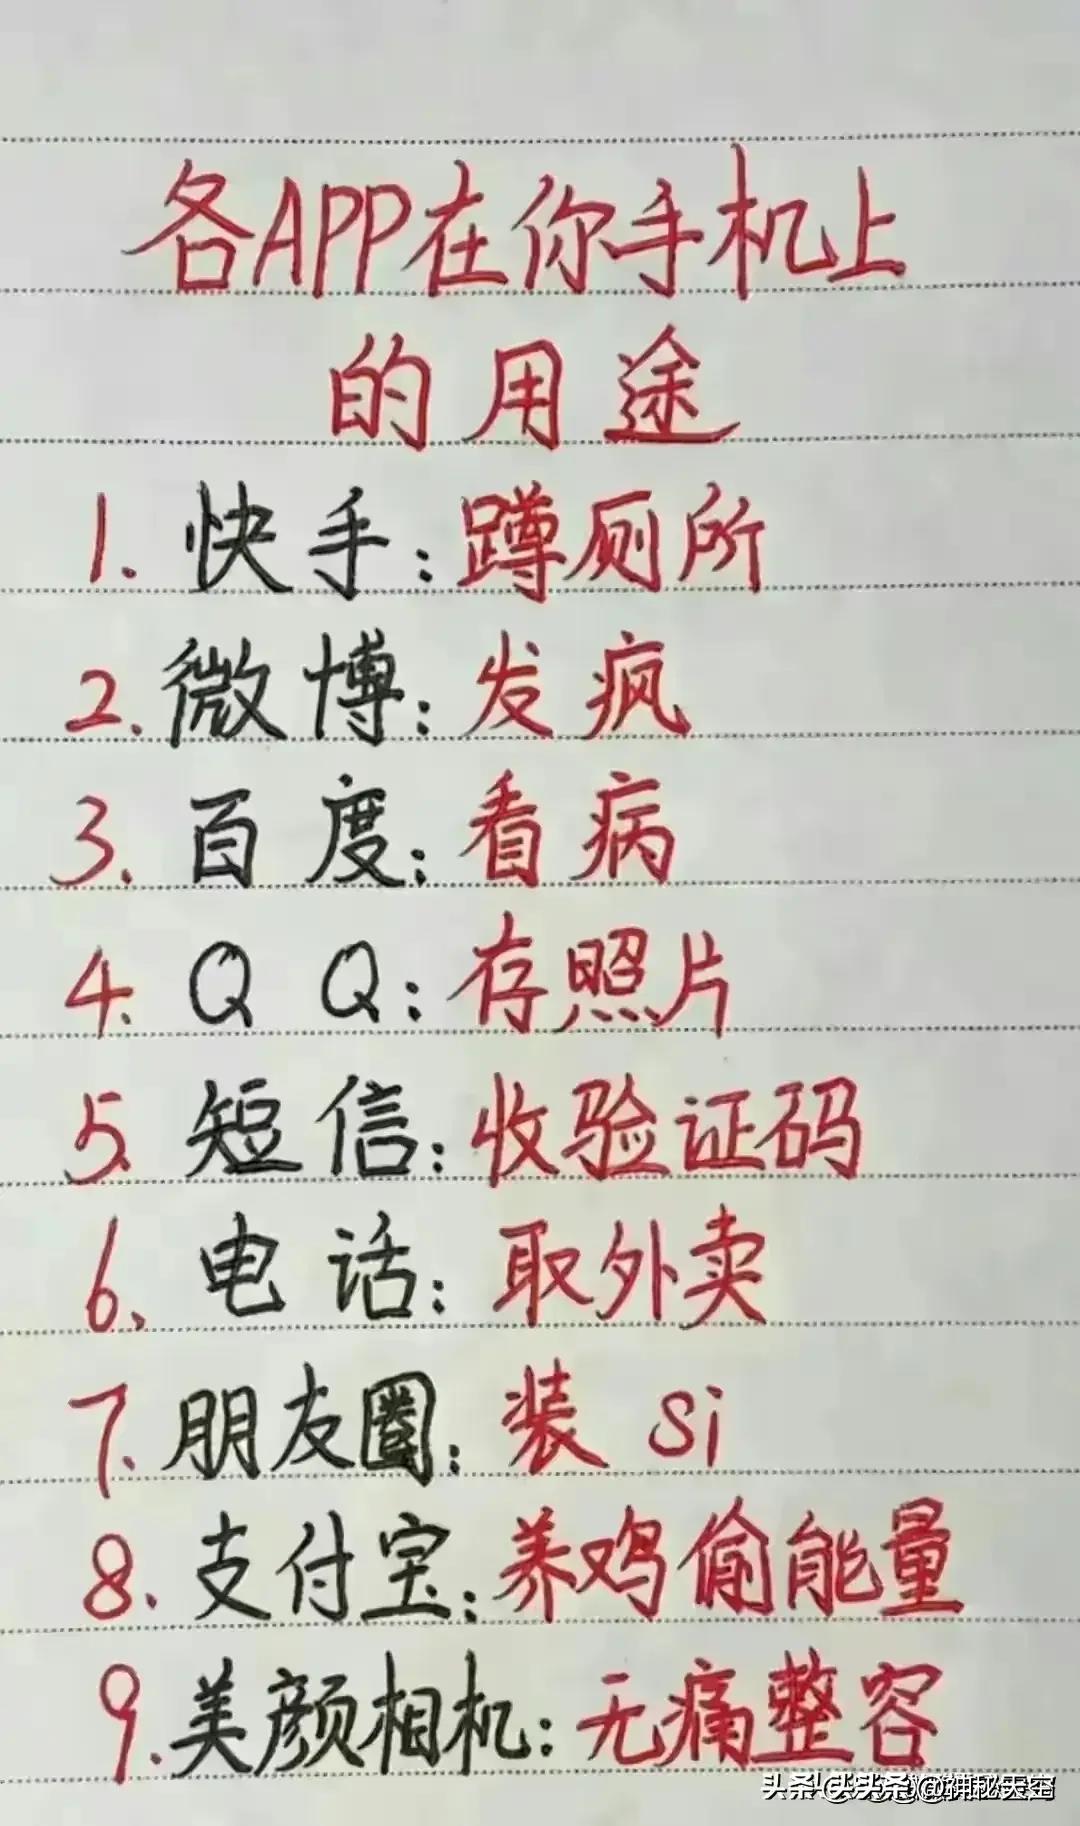 各APP在你手机上
的用途
1. 快手：蹲厕所
2. 微博：发疯
3. 百度：看病
4. QQ：存照片
5. 短信：收验证码
6. 电话：取外卖
7. 朋友圈：装 si
8. 支付宝：养鸡偷能量
9. 美颜相机：无痛整容
头条 @神秘天空